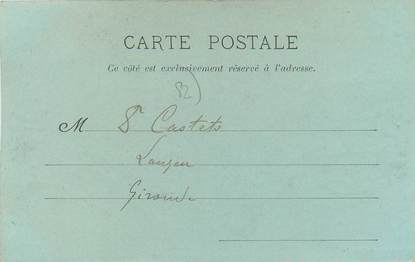 CARTE POSTALE
Ce côté est exclusivement réservé à l'adresse.
M Dr Castets
Gironde